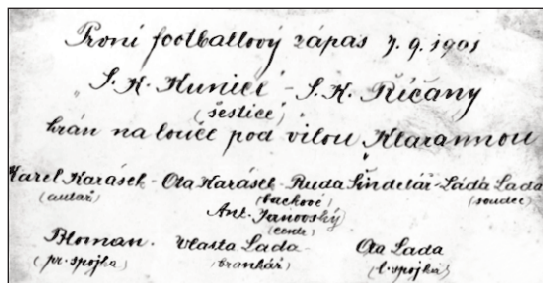 První footballový zápas 7. 9. 1901
„S. K. Kunice" - S. K. Říčany
(šestice)
hrán na louce pod vilou Klarannou
Karel Karásek - Ota Karásek - Ruda Šindelář - Láďa Lada
(autař) (backové) (soudce)
Ant. Janovský
Homan. Vlasta Lada Ota Lada
(pr. spojka) (brankář) (l. spojka)